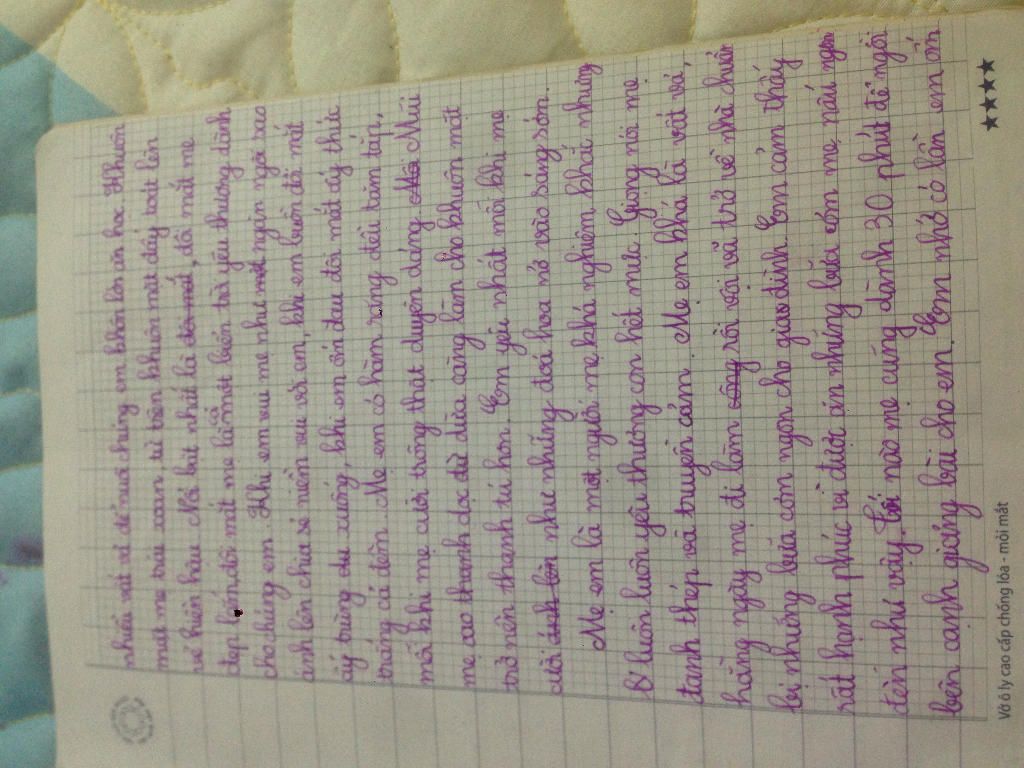 nhiều vất vả để nuôi chúng em khôn lớn ăn học. Khuôn
mặt mẹ trái xoan, từ trên khuôn mặt ấy toát lên
vẻ hiền hậu. Nổi bật nhất là đôi mắt, đôi mắt mẹ
đẹp lắm, đôi mắt mẹ là cả một biển trời yêu thương dành
cho chúng em. Khi em vui mẹ như một ngàn ngôi sao
ánh lên chia sẻ niềm vui với em, khi em buồn đôi mắt
ấy trũng sâu xuống, khi em ốm đau đôi mắt ấy thức
trắng cả đêm. Mẹ em có hàm răng đều tăm tắp,
mỗi khi mẹ cười trông thật duyên dáng Mũi Mũi
mẹ cao thanh dọc dừ dừa càng làm cho khuôn mặt
trở nên thanh tú hơn. Em yêu nhất mỗi khi mẹ
cười ánh lên như những đoá hoa nở vào sáng sớm.
Mẹ em là một người mẹ khá nghiêm khắc nhưng
luôn luôn yêu thương con hết mực. Giọng nói mẹ
đanh thép và truyền cảm. Mẹ em khá là vất vả,
hằng ngày mẹ đi làm công rồi vội vã trở về nhà chuẩn
bị những bữa cơm ngon cho gia đình. Em cảm thấy
rất hạnh phúc vì được ăn những bữa cơm mẹ nấu ngon
đến như vậy. Tối nào mẹ cũng dành 30 phút để ngồi
bên cạnh giảng bài cho em. Em nhớ có lần em ốm
Vở ô ly cao cấp chống lóa - mỏi mắt
★★★★